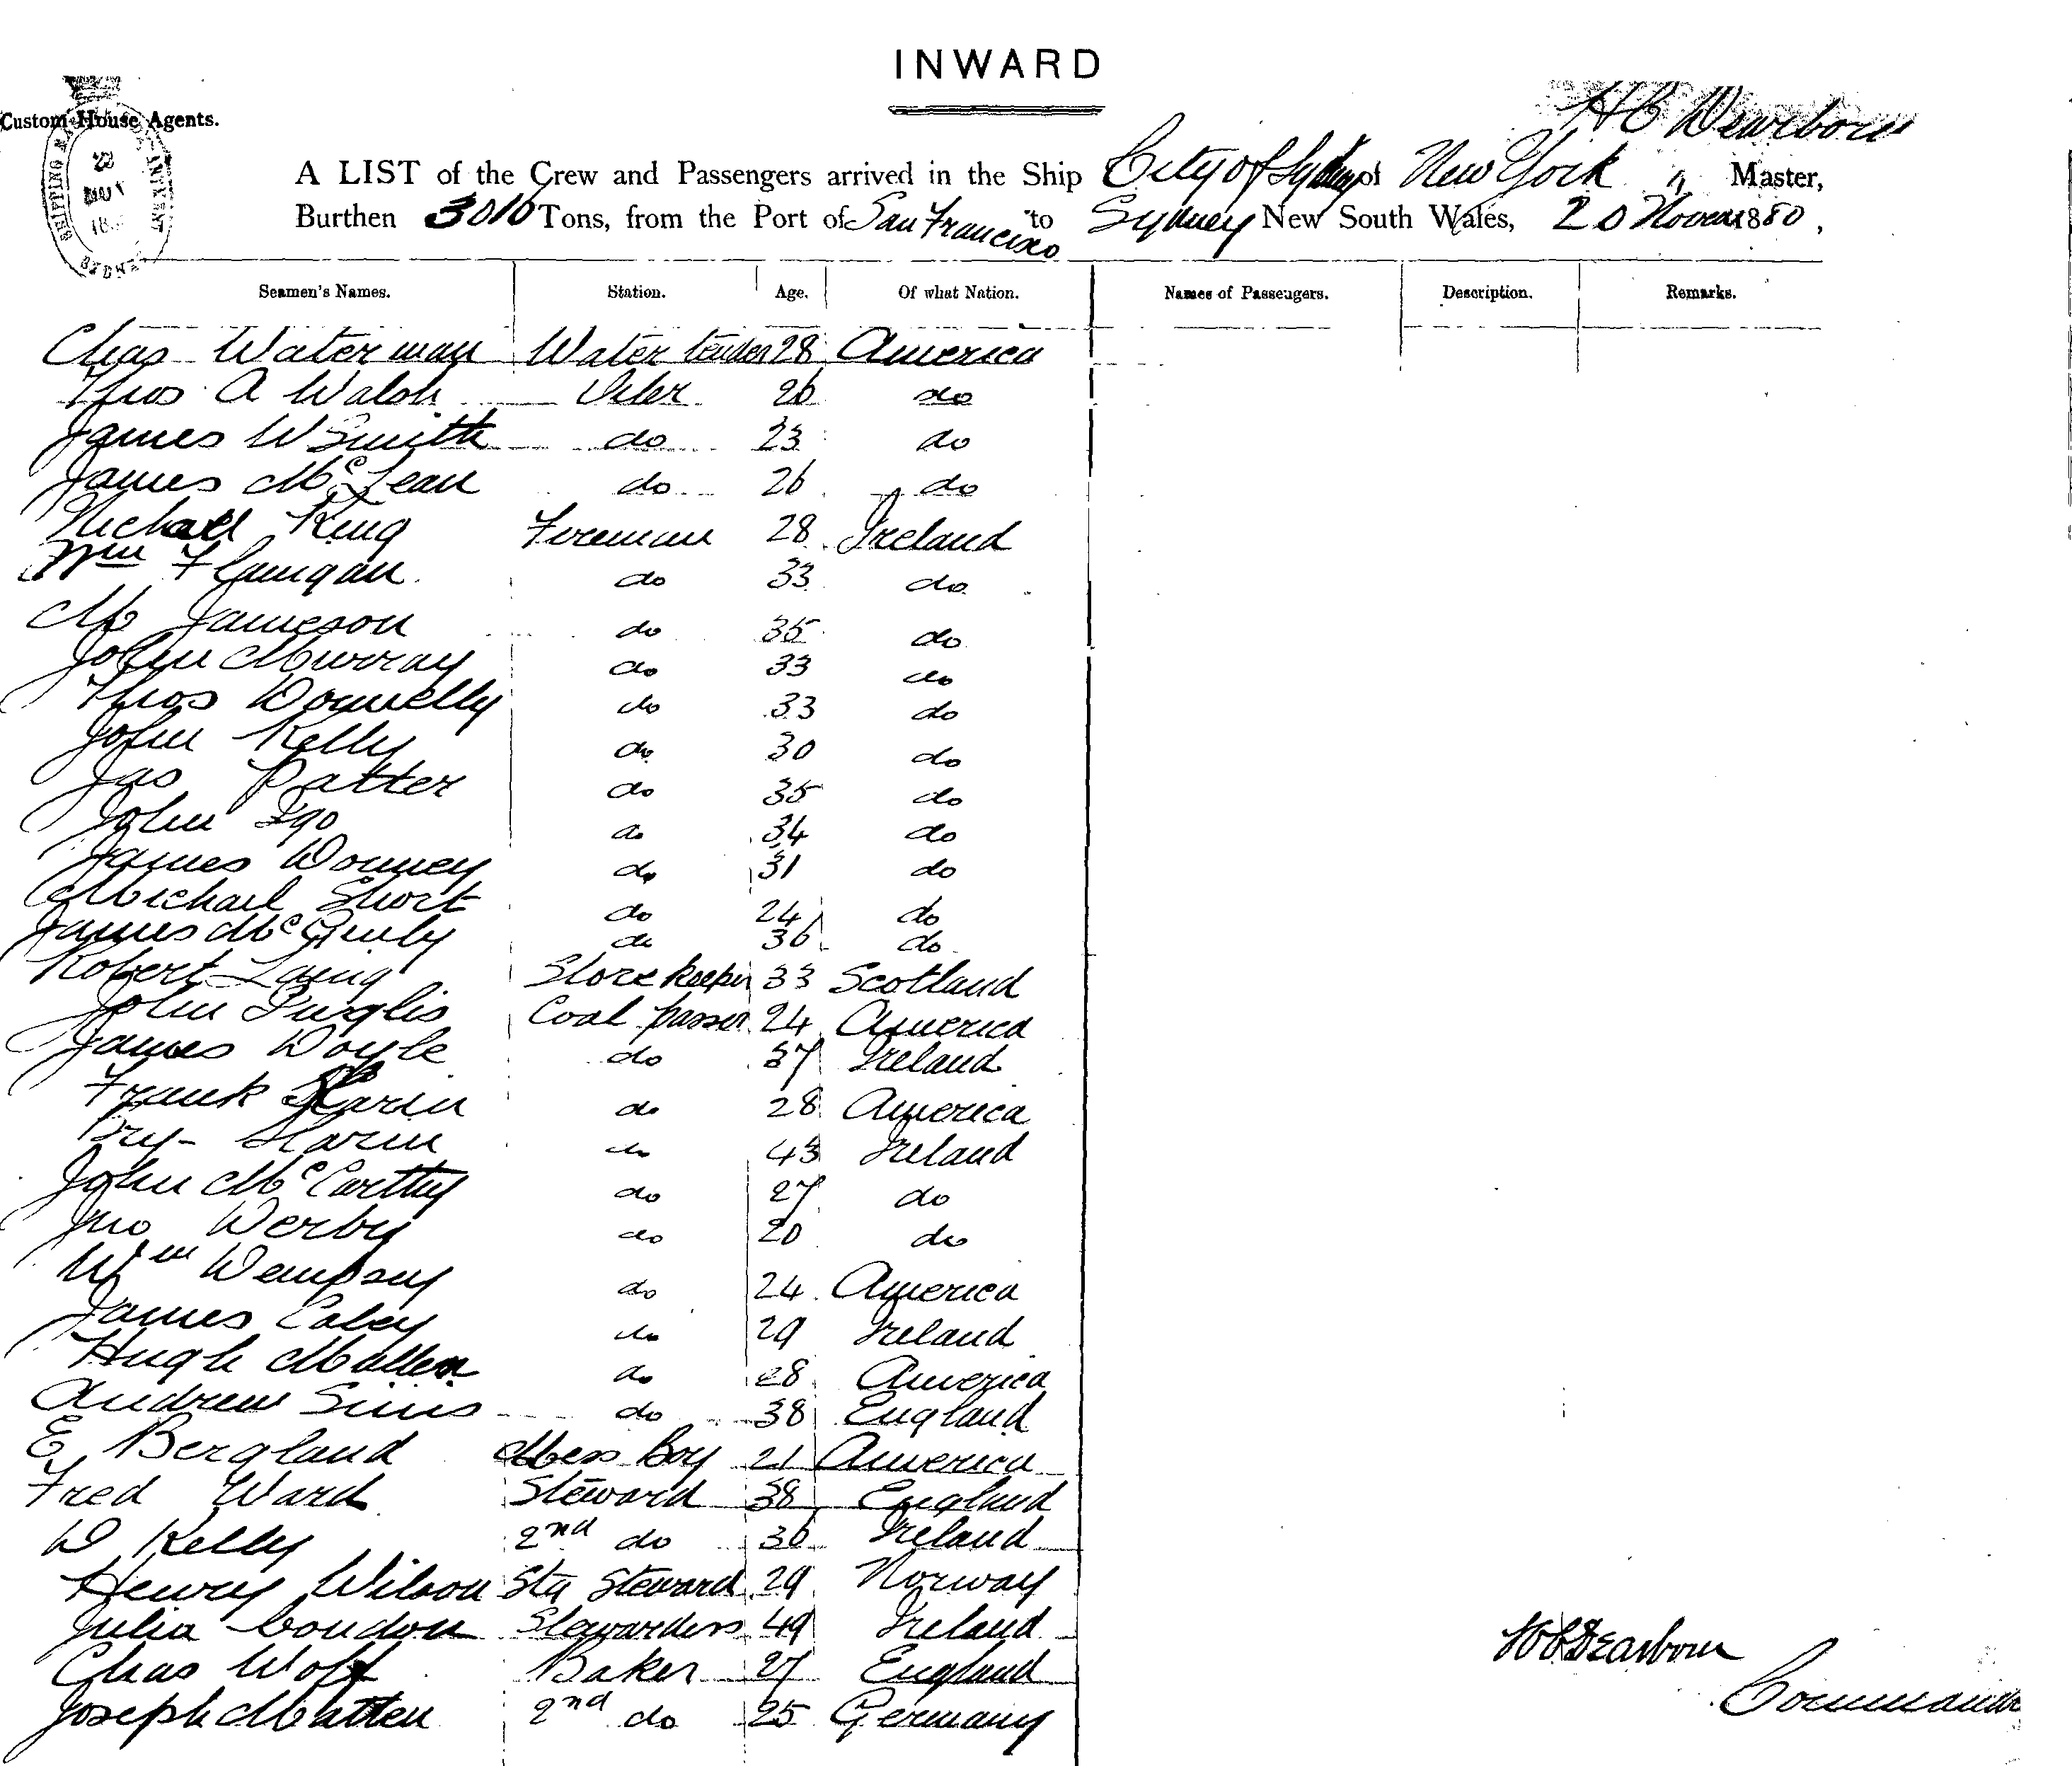 INWARD
Custom House Agents.
H C Dearborn
A LIST of the Crew and Passengers arrived in the Ship City of Sydney of New York " Master,
Burthen 3010 Tons, from the Port of San Francisco to Sydney New South Wales, 20 Novem 1880,
Seamen's Names. Station. Age. Of what Nation. Names of Passengers. Description. Remarks.
Chas Waterman Water tender 28 America
Thos A Walsh Oiler 26 do
James W Smith do 23 do
James McLean do 26 do
Michael King Fireman 28 Ireland
Wm Flanigan do 33 do
M Jameson do 35 do
John Murray do 33 do
Thos Donnelly do 33 do
John Kelly do 30 do
Jas Patter do 35 do
John Igo do 34 do
James Donney do 31 do
Michael Short do 24 do
James McGinly do 36 do
Robert Laing Store keeper 33 Scotland
John Inglis Coal passer 24 America
James Doyle do 37 Ireland
Frank do 28 America
do 43 Ireland
John McCarthy do 27 do
Jno Derby do 20 do
Wm Dempsey do 24 America
James Caley do 29 Ireland
Hugh Mallen do 28 America
Andrew Sims do 38 England
E Bergland Mess Boy 21 America
Fred Ward Steward 38 England
D Kelly 2nd do 36 Ireland
Henry Wilson Stg Steward 29 Norway
Julia Condon Stewardess 49 Ireland
Chas Wolf Baker 27 England
Joseph Matten 2nd do 25 Germany
H C Dearborn
Commander